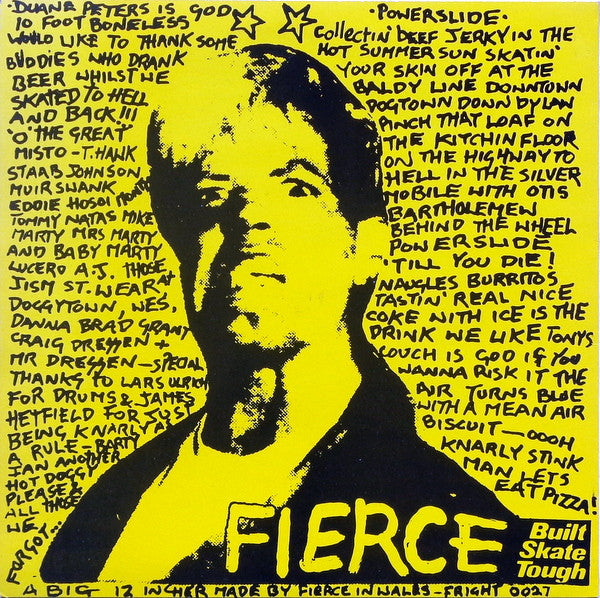 DUANE PETERS IS GOD
10 FOOT BONELESS
WOULD LIKE TO THANK SOME
BUDDIES WHO DRANK
BEER WHILST WE
SKATED TO HELL
AND BACK!!!
"O" THE GREAT
MISTO - T.HAWK
STAAB JOHNSON
MUIR SWANK
EDDIE HOSOI
TOMMY NATAS MIKE
MARTY MRS MARTY
AND BABY MARTY
LUCERO A.J. THOSE
JISM ST. WEAR AT
DOGGYTOWN, WES,
DANNA BRAD GRANT
CRAIG DRESSEN +
MR DRESSEN - SPECIAL
THANKS TO LARS ULRICH
FOR DRUMS & JAMES
HEYFIELD FOR JUST
BEING KNARLY AS
A RULE - BARTY
IAN ANOTHER
HOT DOGGY
PLEASE &
ALL THOSE
WE
FORGOT...
·POWERSLIDE·
collectin' BEEF JERKY IN THE
HOT SUMMER SUN SKATIN'
YOUR SKIN OFF AT THE
BALDY LINE DOWNTOWN
DOGTOWN DOWN DYLAN
PINCH THAT LOAF ON
THE KITCHIN FLOOR
ON THE HIGHWAY TO
HELL IN THE SILVER
MOBILE WITH OTIS
BARTHOLEMEW
BEHIND THE WHEEL
POWERSLIDE
'TILL YOU DIE!
NAUGLES BURRITOS
TASTIN' REAL NICE
COKE WITH ICE IS THE
DRINK WE LIKE TONYS
COUCH IS GOD IF YOU
WANNA RISK IT THE
AIR TURNS BLUE
WITH A MEAN AIR
BISCUIT - OOOH
KNARLY STINK
MAN LETS
EAT PIZZA!
FIERCE
Built
Skate
Tough
A BIG 12 INCHER MADE BY FIERCE IN WALES - FRIGHT 0027